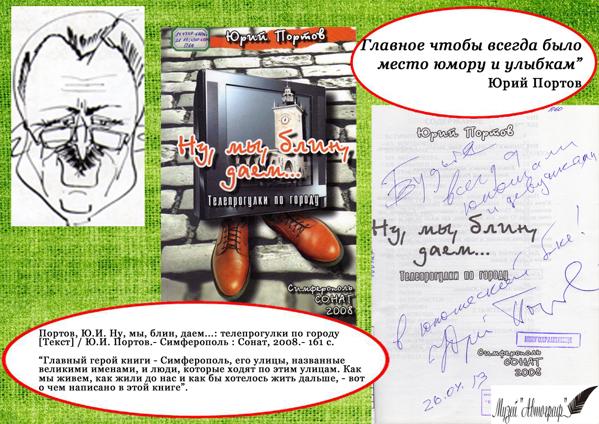 Юрий Портов
Ну, мы, блин,
даем...
Телепрогулки по городу
Симферополь
СОНАТ
2008
"Главное чтобы всегда было
место юмору и улыбкам”
Юрий Портов
Юрий Портов
Будьте
всегда
юношами
и девушками
Ну, мы, блин,
даем...
Телепрогулки по городу
в юношеском
Юрий
Симферополь
СОНАТ
2008
26.04.13
Портов, Ю.И. Ну, мы, блин, даем...: телепрогулки по городу
[Текст] / Ю.И. Портов.- Симферополь : Сонат, 2008.- 161 с.
“Главный герой книги - Симферополь, его улицы, названные
великими именами, и люди, которые ходят по этим улицам. Как
мы живем, как жили до нас и как бы хотелось жить дальше, - вот
о чем написано в этой книге”.
Музей "Автограф"